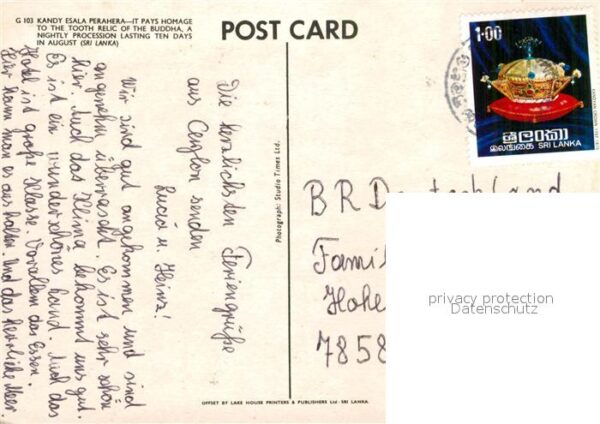 G 103 KANDY ESALA PERAHERA—IT PAYS HOMAGE
TO THE TOOTH RELIC OF THE BUDDHA, A
NIGHTLY PROCESSION LASTING TEN DAYS
IN AUGUST (SRI LANKA)
POST CARD
1·00
ශ්‍රී ලංකා
இலங்கை SRI LANKA
Die herzlichsten Feriengrüße
aus Ceylon senden
Lucia u. Heinz!
Wir sind gut angekommen und sind
angenehm überrascht. Es ist sehr schön
hier. Auch das Klima bekommt uns gut.
Es ist ein wunderschönes Land. Auch das
Hotel ist große Klasse. Vorallem das Essen.
Hier kann man es aushalten. Und das herrliche Meer.
Photograph: Studio Times Ltd.
BR Deutschland
Famil
Hohe
7858
privacy protection
Datenschutz
OFFSET BY LAKE HOUSE PRINTERS & PUBLISHERS Ltd - SRI LANKA